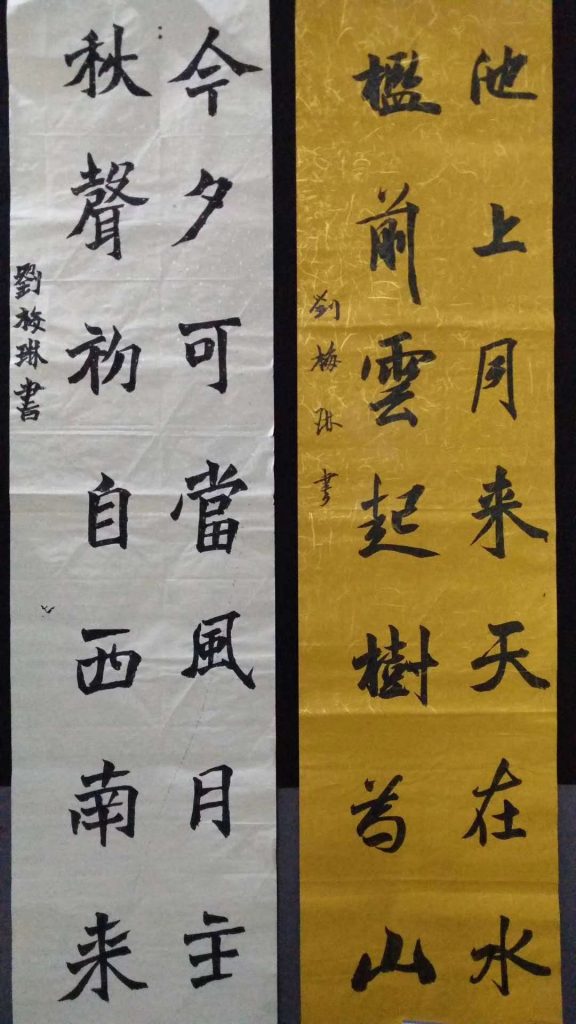 池上月来天在水
檻前雲起樹為山
劉梅琳書
今夕可當風月主
秋聲初自西南来
劉梅琳書